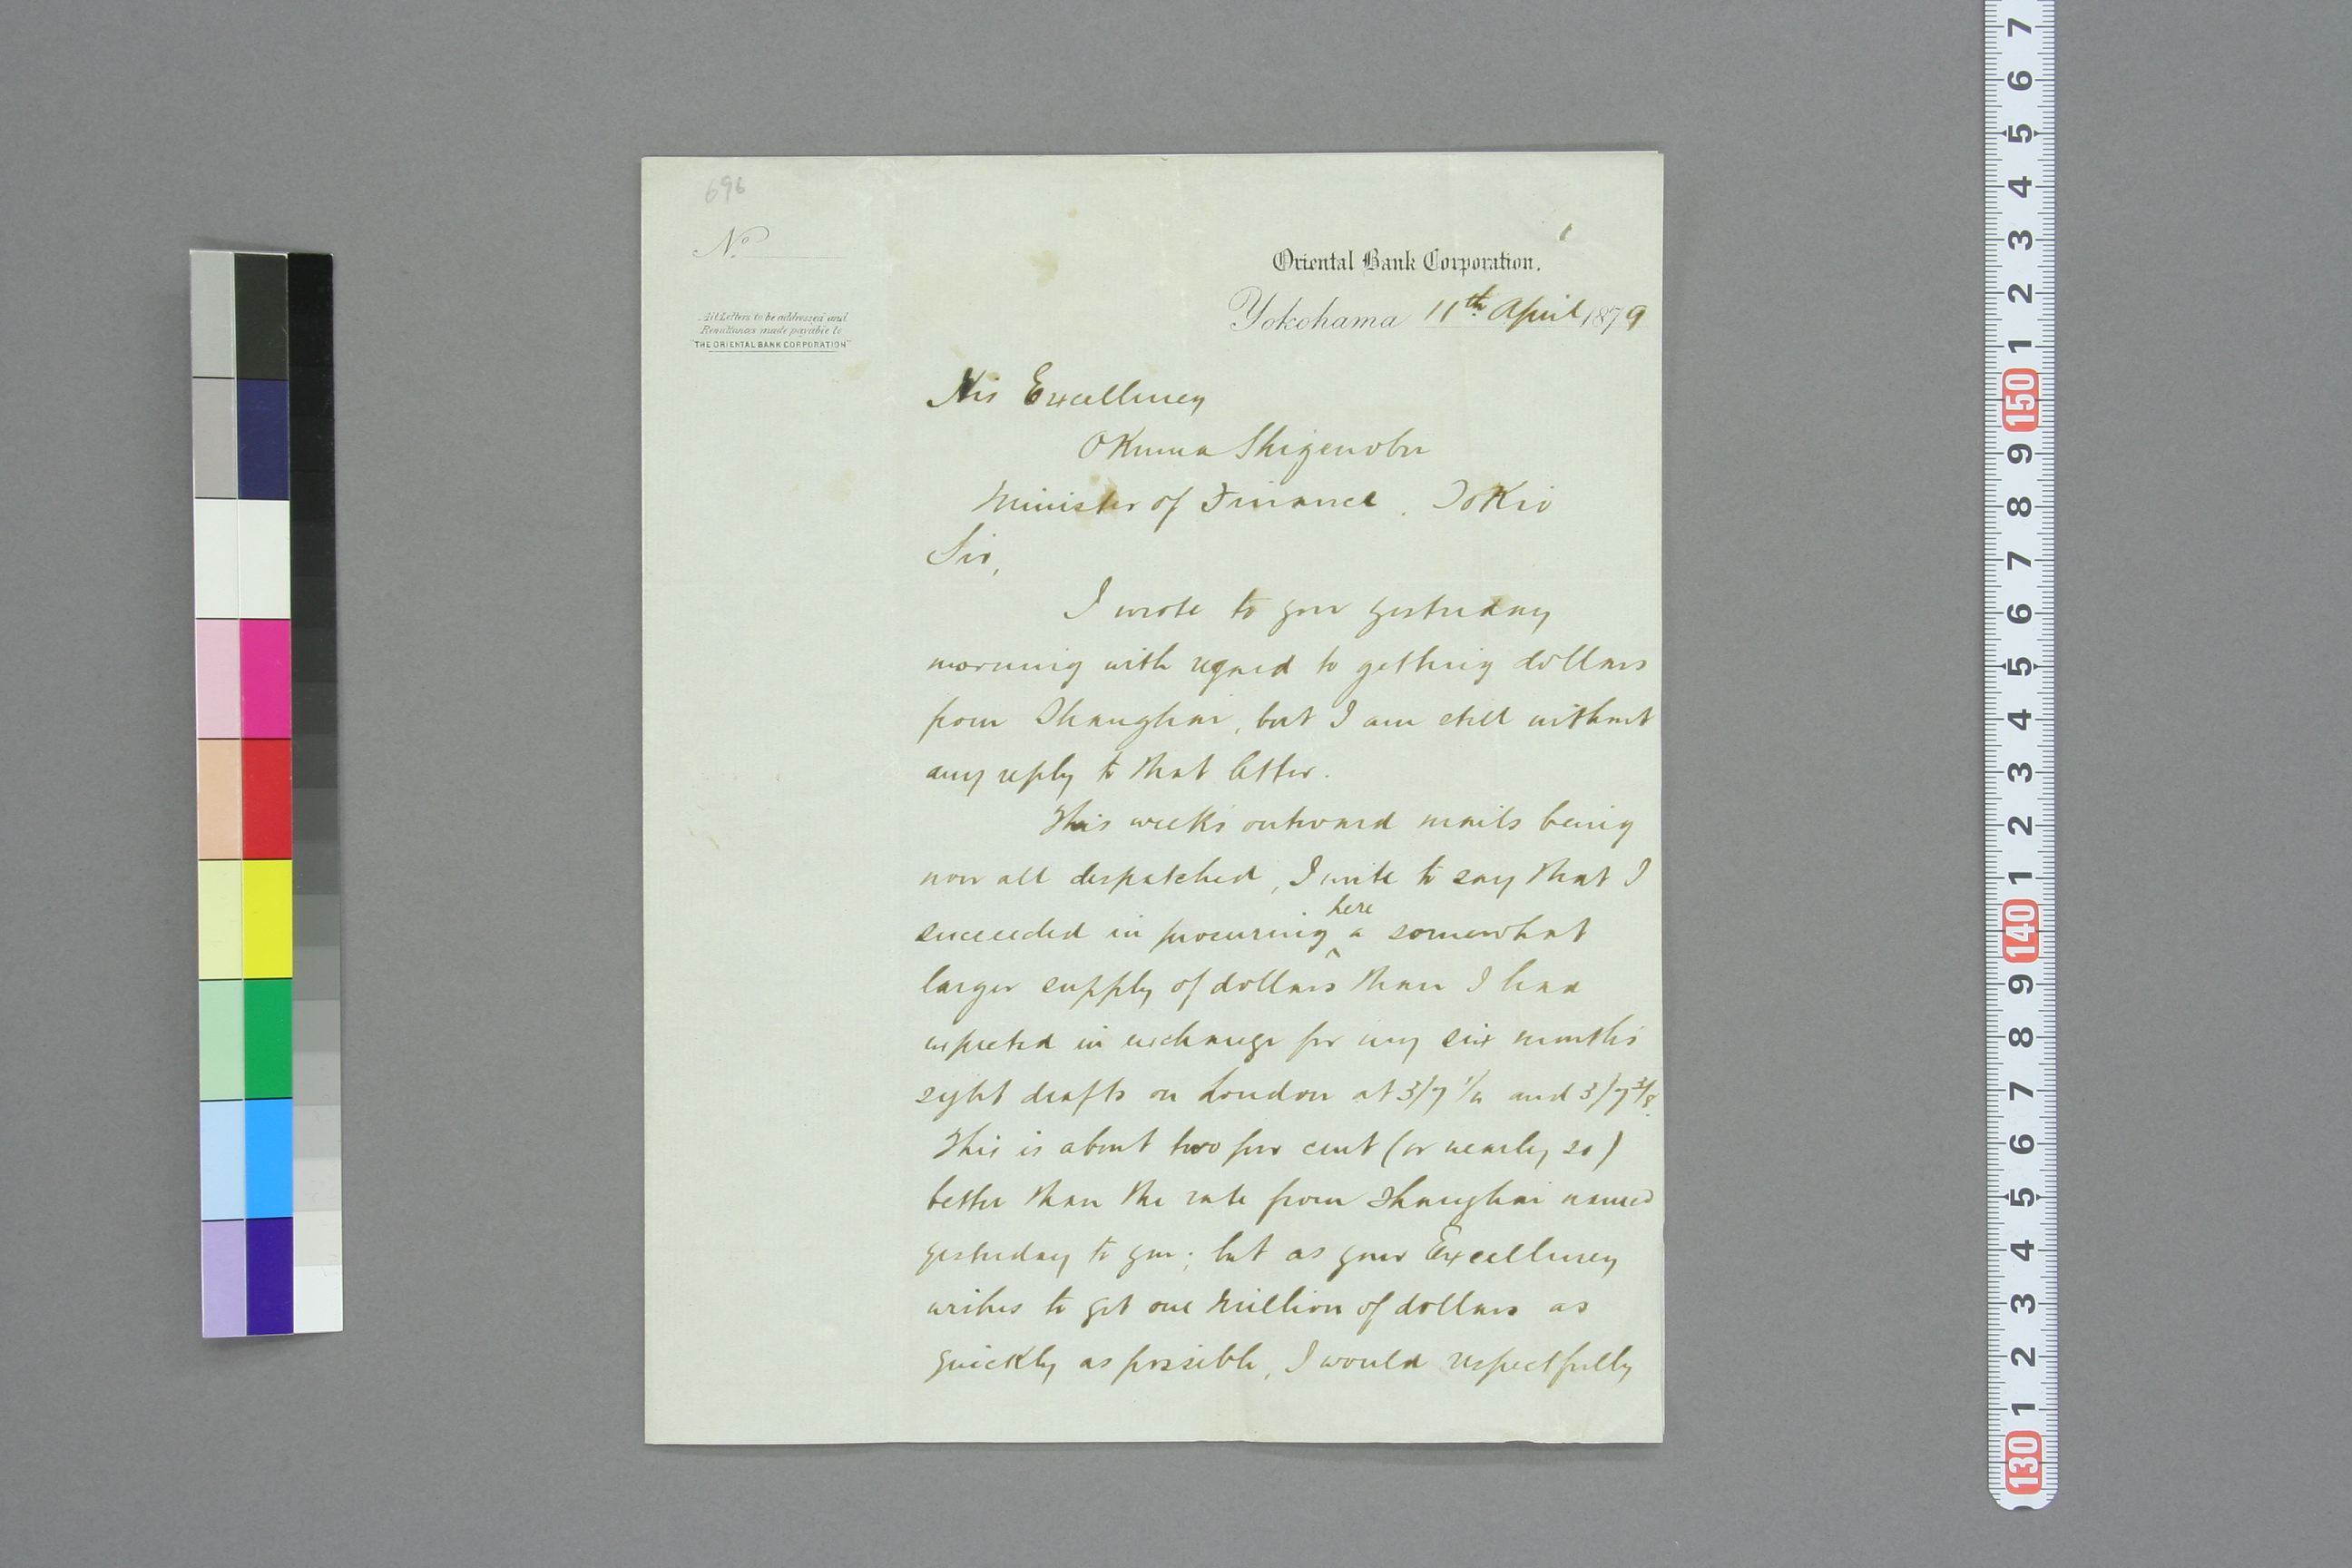 696
No.
All Letters to be addressed and
Remittances made payable to
"THE ORIENTAL BANK CORPORATION"
Oriental Bank Corporation.
Yokohama 11th April 1879
His Excellency
Okuma Shigenobu
Minister of Finance. Tokio
Sir,
I wrote to you yesterday
morning with regard to getting dollars
from Shanghai, but I am still without
any reply to that letter.
This week's outward mails being
now all despatched, I write to say that I
succeeded in procuring here a somewhat
larger supply of dollars than I had
expected in exchange for my six months'
sight drafts on London at 3/7 and 3/7 3/8.
This is about two per cent (or nearly so)
better than the rate from Shanghai named
yesterday to you; but as your Excellency
wishes to get one Million of dollars as
quickly as possible, I would respectfully
7
6
5
4
3
2
1
150
9
8
7
6
5
4
3
2
1
140
9
8
7
6
5
4
3
2
1
130